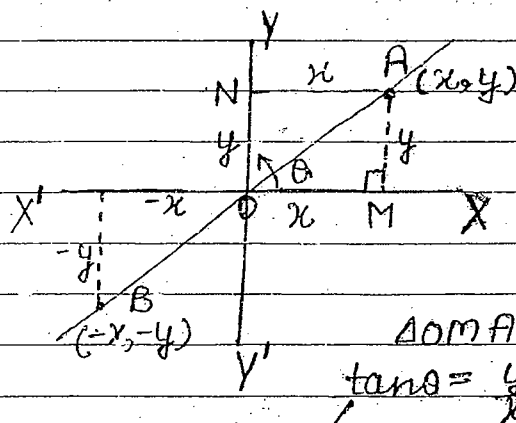 Y
A
N x (x,y)
y θ y
X' -x O x M X
-y
B
(-x,-y)
Y' ΔOMA
tanθ = y/x